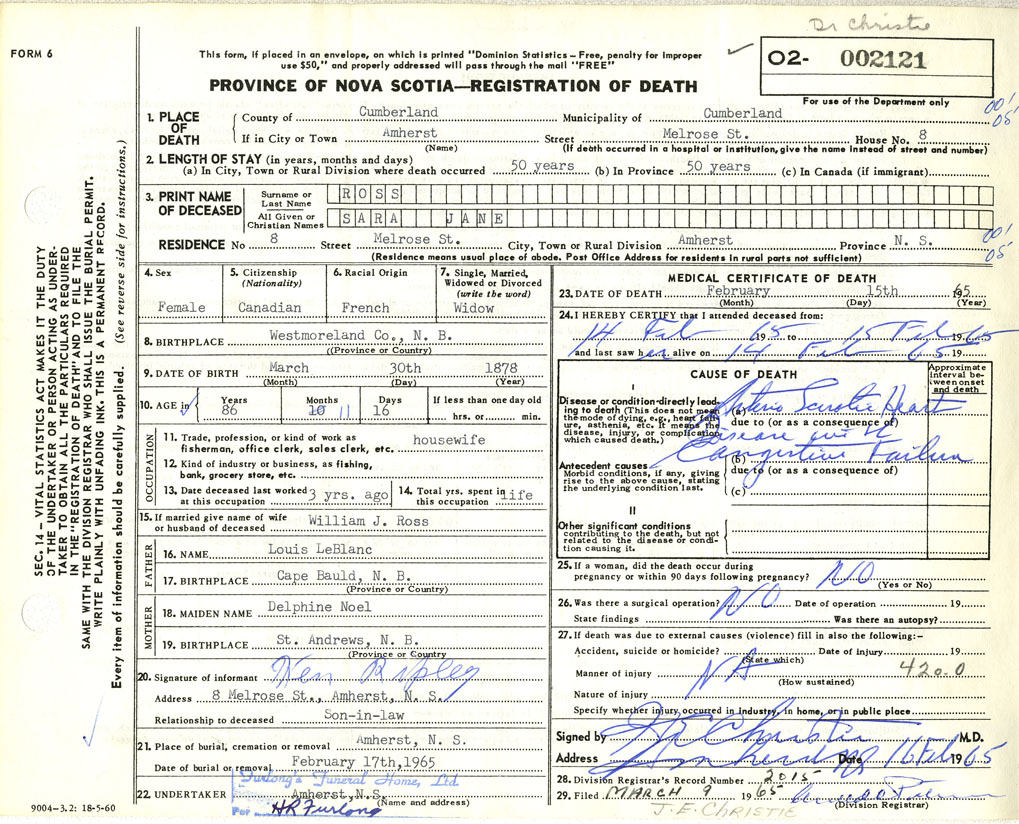 Dr Christie
FORM 6
This form, if placed in an envelope, on which is printed "Dominion Statistics – Free, penalty for improper
use $50," and properly addressed will pass through the mail "FREE"
O2- 002121
PROVINCE OF NOVA SCOTIA—REGISTRATION OF DEATH
For use of the Department only
001
05
1. PLACE OF DEATH
County of Cumberland Municipality of Cumberland
If in City or Town Amherst Street Melrose St. House No. 8
(Name) (If death occurred in a hospital or institution, give the name instead of street and number)
2. LENGTH OF STAY (in years, months and days)
(a) In City, Town or Rural Division where death occurred 50 years (b) In Province 50 years (c) In Canada (if immigrant)
3. PRINT NAME OF DECEASED
Surname or Last Name ROSS
All Given or Christian Names SARA JANE
RESIDENCE No 8 Street Melrose St. City, Town or Rural Division Amherst Province N. S.
001
05
(Residence means usual place of abode. Post Office Address for residents in rural parts not sufficient)
4. Sex
Female
5. Citizenship
(Nationality)
Canadian
6. Racial Origin
French
7. Single, Married,
Widowed or Divorced
(write the word)
Widow
8. BIRTHPLACE Westmoreland Co., N. B.
((Province or Country)
9. DATE OF BIRTH March 30th 1878
(Month) (Day) (Year)
10. AGE in
Years Months Days If less than one day old
86 10 11 16 hrs. or min.
OCCUPATION
11. Trade, profession, or kind of work as
fisherman, office clerk, sales clerk, etc. housewife
12. Kind of industry or business, as fishing,
bank, grocery store, etc.
13. Date deceased last worked
at this occupation 3 yrs. ago
14. Total yrs. spent in
this occupation life
15. If married give name of wife
or husband of deceased William J. Ross
FATHER
16. NAME Louis LeBlanc
17. BIRTHPLACE Cape Bauld, N. B.
(Province or Country)
MOTHER
18. MAIDEN NAME Delphine Noel
19. BIRTHPLACE St. Andrews, N. B.
(Province or Country)
20. Signature of informant Ken Ripley
Address 8 Melrose St., Amherst, N. S.
Relationship to deceased Son-in-law
21. Place of burial, cremation or removal Amherst, N. S.
Date of burial or removal February 17th, 1965
Furlong's Funeral Home, Ltd.
22. UNDERTAKER Amherst, N.S.
(Name and address)
Per HR Furlong
9004–3.2: 18-5-60
MEDICAL CERTIFICATE OF DEATH
23. DATE OF DEATH February 15th 1965
(Month) (Day) (Year)
24. I HEREBY CERTIFY that I attended deceased from:
14 Feb 65 19 to 15 Feb 1965
and last saw her alive on 14 Feb 65 19
CAUSE OF DEATH
Approximate
interval be-
tween onset
and death
I
Disease or condition directly lead-
ing to death (This does not mean
the mode of dying, e.g., heart fail-
ure, asthenia, etc. It means the
disease, injury, or complication
which caused death.)
(a) Arterio Sclerotic Heart
due to (or as a consequence of)
Disease with
(b) Congestive Failure
Antecedent causes
Morbid conditions, if any, giving
rise to the above cause, stating
the underlying condition last.
due to (or as a consequence of)
(c)
II
Other significant conditions
contributing to the death, but not
related to the disease or condi-
tion causing it.
25. If a woman, did the death occur during
pregnancy or within 90 days following pregnancy? NO
(Yes or No)
26. Was there a surgical operation? NO Date of operation 19
State findings Was there an autopsy?
27. If death was due to external causes (violence) fill in also the following:–
Accident, suicide or homicide? Date of injury 19
(State which)
Manner of injury NA 420.0
(How sustained)
Nature of injury
Specify whether injury occurred in industry, in home, or in public place
Signed by J E Christie M.D.
Address Date 16 Feb 1965
28. Division Registrar's Record Number 2015
29. Filed MARCH 9 1965
(Division Registrar)
J. E. CHRISTIE
SEC. 14 – VITAL STATISTICS ACT MAKES IT THE DUTY
OF THE UNDERTAKER OR PERSON ACTING AS UNDER-
TAKER TO OBTAIN ALL THE PARTICULARS REQUIRED
IN THE "REGISTRATION OF DEATH" AND TO FILE THE
SAME WITH THE DIVISION REGISTRAR WHO SHALL ISSUE THE BURIAL PERMIT.
WRITE PLAINLY WITH UNFADING INK. THIS IS A PERMANENT RECORD.
Every item of information should be carefully supplied. (See reverse side for instructions.)